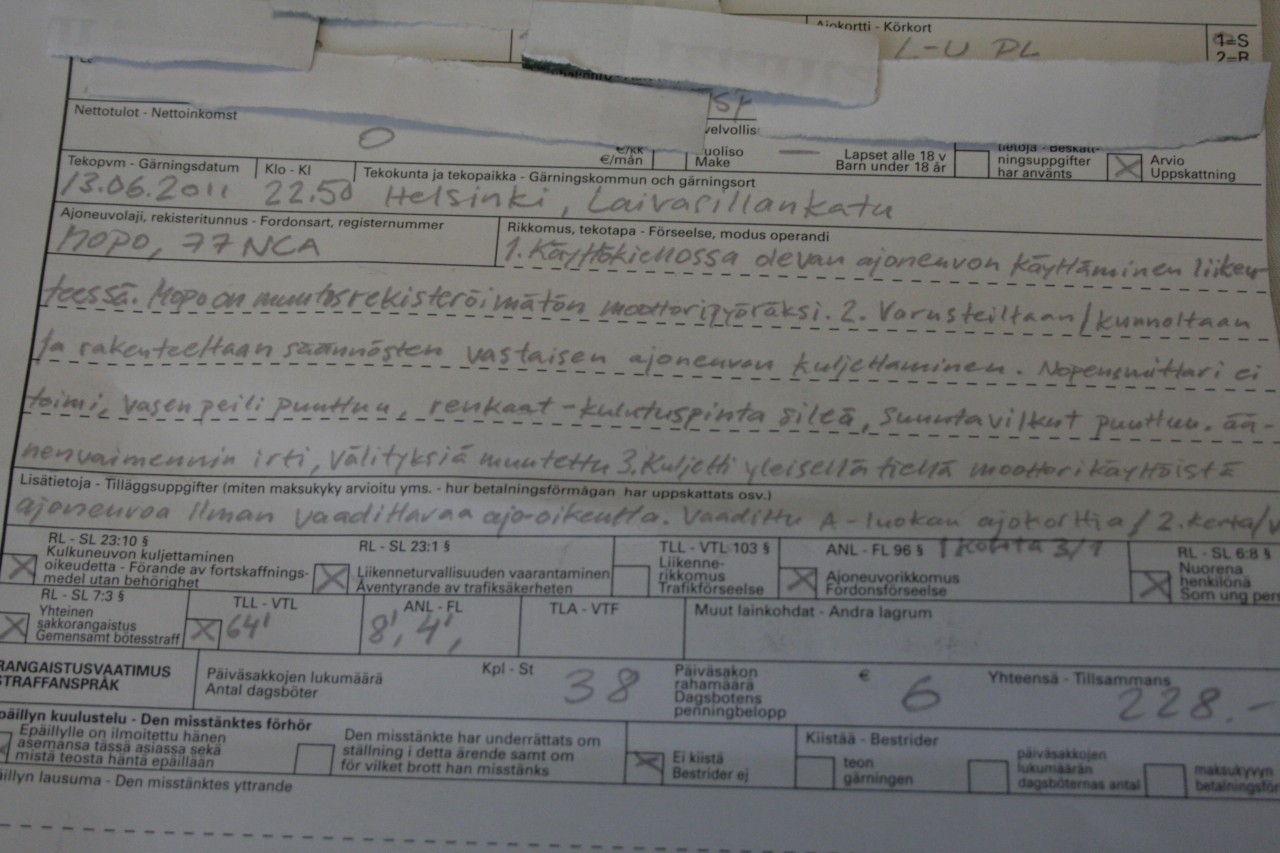 Ajokortti - Körkort
L-U PL
1=S
2=R
Nettotulot - Nettoinkomst
0
€/kk
€/mån
Make
Lapset alle 18 v
Barn under 18 år
ningsuppgifter
har använts
Arvio
Uppskattning
Tekopvm - Gärningsdatum
Klo - Kl
Tekokunta ja tekopaikka - Gärningskommun och gärningsort
13.06.2011 22.50 Helsinki, Laivasillankatu
Ajoneuvolaji, rekisteritunnus - Fordonsart, registernummer
Rikkomus, tekotapa - Förseelse, modus operandi
Mopo, 77 NCA
1. Käyttökiellossa olevan ajoneuvon käyttäminen liiken-
teessä. Mopo on muutosrekisteröimätön moottoripyöräksi. 2. Varusteiltaan/kunnoltaan
ja rakenteeltaan säännösten vastaisen ajoneuvon kuljettaminen. Nopeusmittari ei
toimi, vasen peili puuttuu, renkaat-kulutuspinta sileä, suuntavilkut puuttuu. ää-
nenvaimennin irti, välityksiä muutettu 3. Kuljetti yleisellä tiellä moottorikäyttöistä
Lisätietoja - Tilläggsuppgifter (miten maksukyky arvioitu yms. - hur betalningsförmågan har uppskattats osv.)
ajoneuvoa ilman vaadittavaa ajo-oikeutta. Vaadittu A-luokan ajokorttia / 2. kerta/v
RL - SL 23:10 §
Kulkuneuvon kuljettaminen
oikeudetta - Förande av fortskaffnings-
medel utan behörighet
RL - SL 23:1 §
Liikenneturvallisuuden vaarantaminen
Äventyrande av trafiksäkerheten
TLL - VTL 103 §
Liikenne-
rikkomus
Trafikförseelse
ANL - FL 96 §
1 kohta 3/1
Ajoneuvorikkomus
Fordonsförseelse
RL - SL 6:8 §
Nuorena
henkilönä
Som ung pers
RL - SL 7:3 §
Yhteinen
sakkorangaistus
Gemensamt bötesstraff
TLL - VTL
64'
ANL - FL
8', 4',
TLA - VTF
Muut lainkohdat - Andra lagrum
RANGAISTUSVAATIMUS
STRAFFANSPRÅK
Päiväsakkojen lukumäärä
Antal dagsböter
Kpl - St
38
Päiväsakon
rahamäärä
Dagsbotens
penningbelopp
€
6
Yhteensä - Tillsammans
228.-
päillyn kuulustelu - Den misstänktes förhör
Epäillylle on ilmoitettu hänen
asemansa tässä asiassa sekä
mistä teosta häntä epäillään
Den misstänkte har underrättats om
ställning i detta ärende samt om
för vilket brott han misstänks
Ei kiistä
Bestrider ej
Kiistää - Bestrider
teon
gärningen
päiväsakkojen
lukumäärän
dagsböternas antal
maksukyvyn
betalningsför
äillyn lausuma - Den misstänktes yttrande